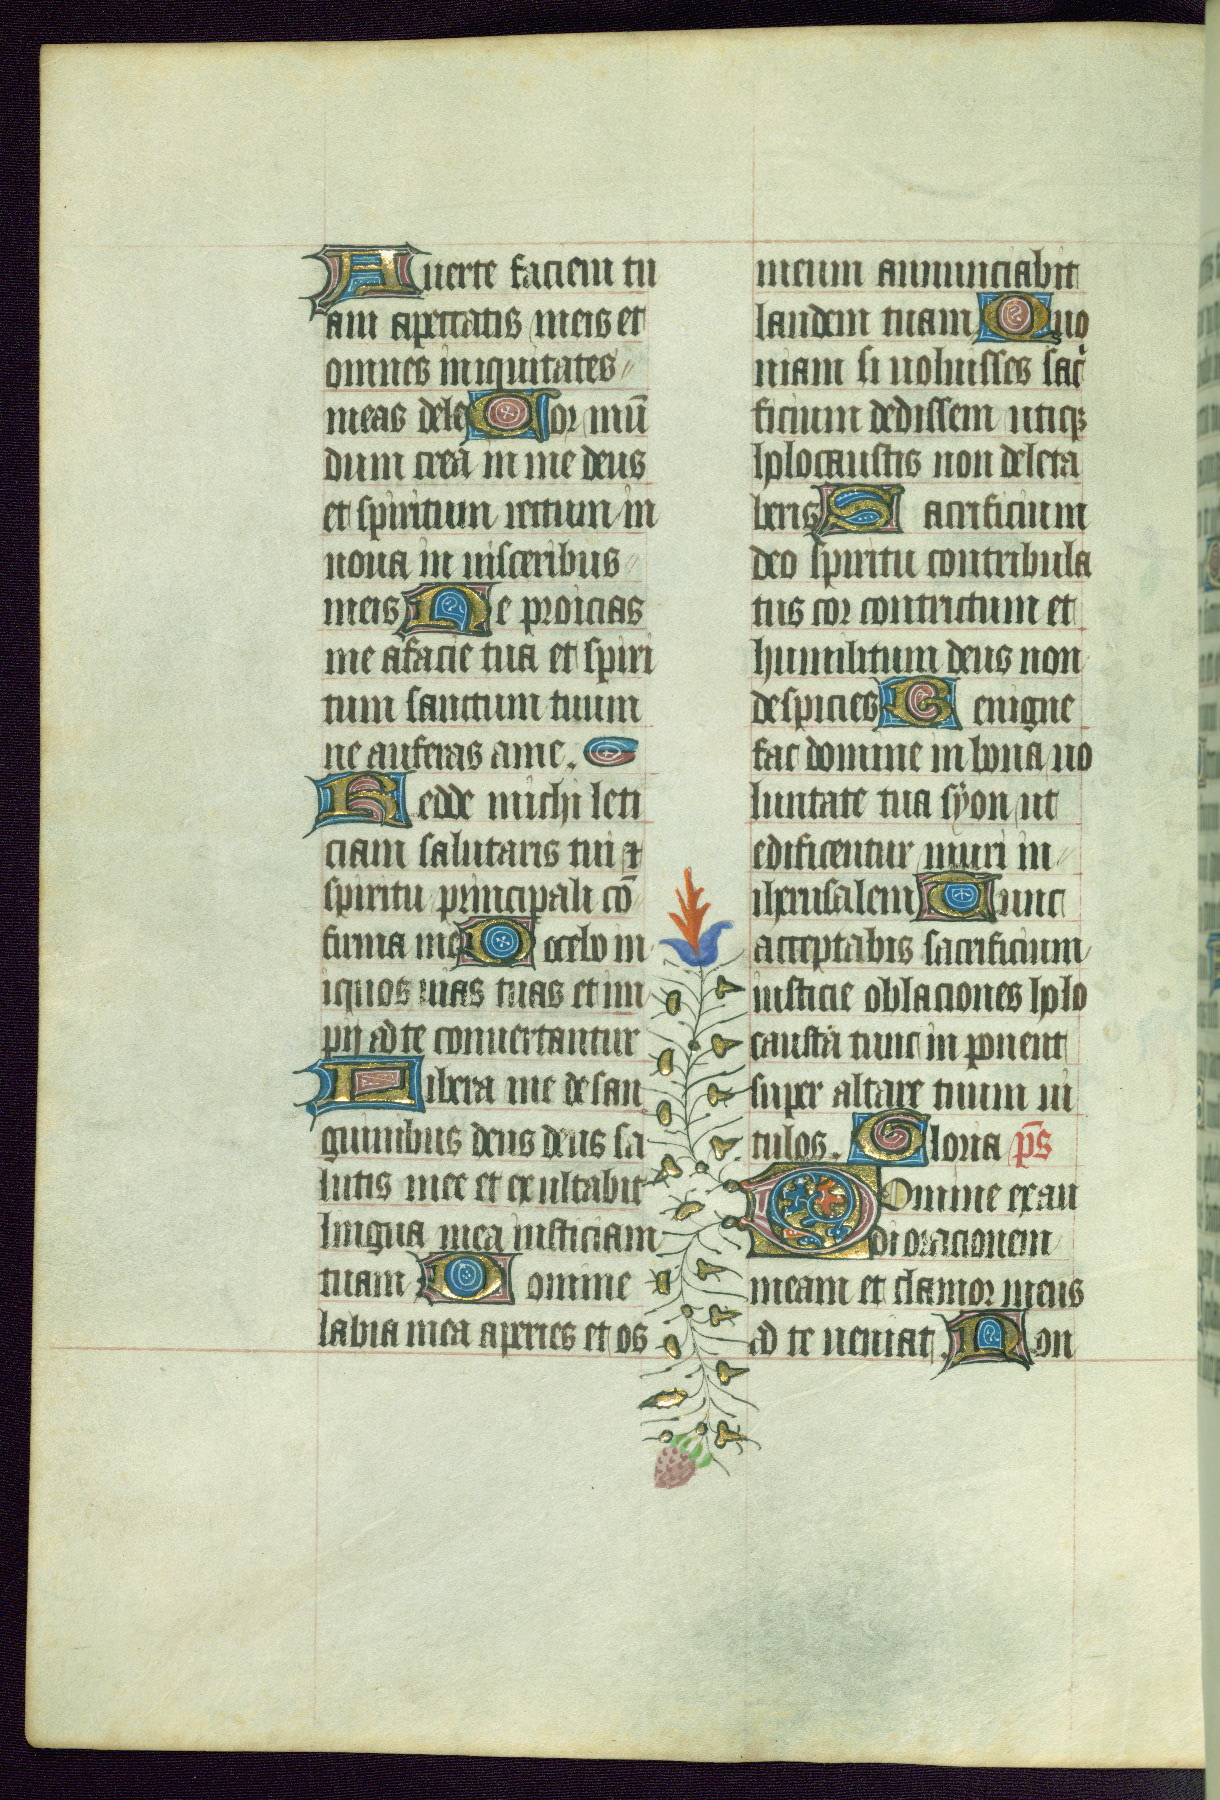 Auerte faciem tu
am apeccatis meis et
omnes iniquitates
meas dele Cor mū
dum crea in me deus
et spiritum rectum in
noua in uisceribus
meis Ne proicias
me afacie tua et spiri
tum sanctum tuum
ne auferas ame.
Redde michi leti
ciam salutaris tui ⁊
spiritu principali cō
firma me Docebo in
iquos uias tuas et im
pij ad te conuertantur
Libera me de san
guinibus deus deus sa
lutis mee et exultabit
lingua mea iusticiam
tuam Domine
labia mea aperies et os
meum annunciabit
laudem tuam Quo
niam si uoluisses sac̄
ficium dedissem utiqꝫ
holocaustis non delecta
beris Sacrificium
deo spiritu contribula
tus cor contrictum et
humilitum deus non
despicies Benigne
fac domine in bona uo
luntate tua syon ut
edificentur muri in
iherusalem Tunc
acceptabis sacrificium
iusticie oblaciones holo
causta tunc in ponent
super altare tuum ui
tulos. Gloria p̄s
Domine exau
di oracionem
meam et clamor meus
ad te ueniat. Non